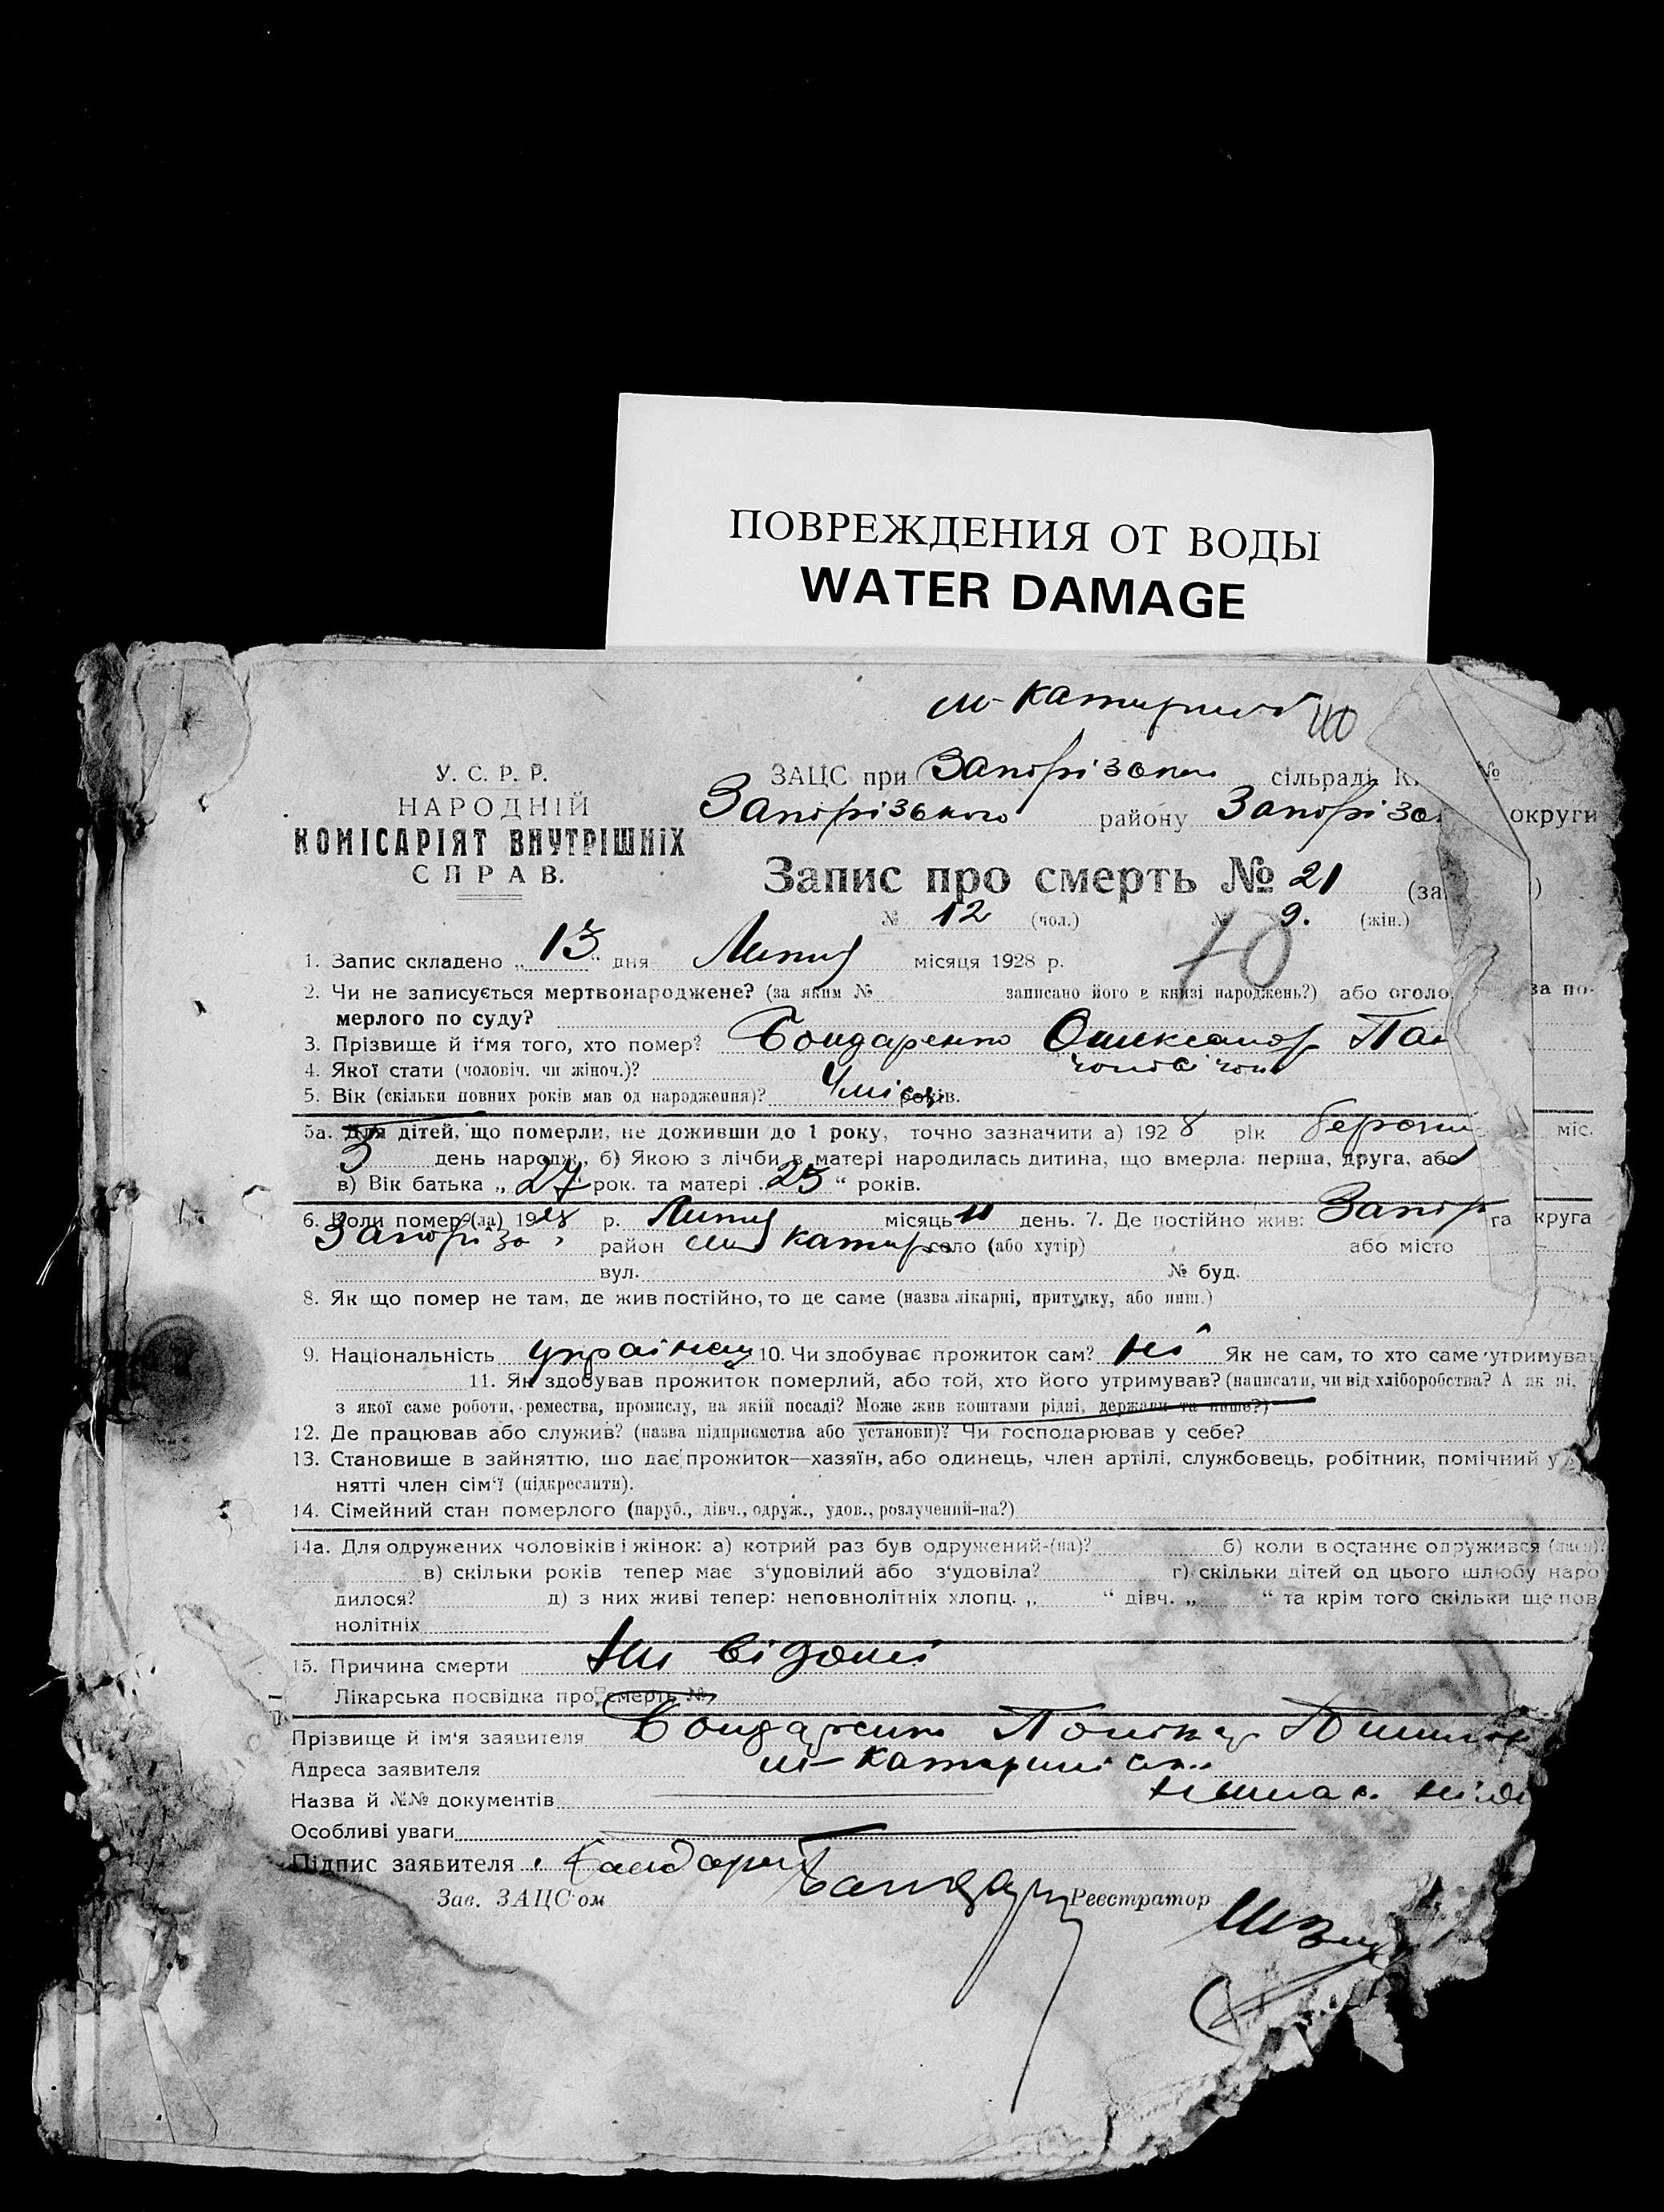 ПОВРЕЖДЕНИЯ ОТ ВОДЫ
WATER DAMAGE
У. С. Р. Р.
НАРОДНІЙ
КОМІСАРІЯТ ВНУТРІШНІХ
СПРАВ.
ЗАЦС при сільраді К. №
Запорізького району Запоріз округи
Запис про смерть № 21 (за )
№ 12 (чол.) № 9. (жін.)
70
1. Запис складено „ 13 “ дня Липня місяця 1928 р.
2. Чи не записується мертвонароджене? (за яким № записано його в книзі народжень?) або оголо за по-
мерлого по суду?
3. Прізвище й ім'я того, хто помер? Бондаренко Олександр Пан
4. Якої стати (чоловіч. чи жіноч.)?
5. Вік (скільки повних років мав од народження)? 4 місяці років.
5а. Для дітей, що померли, не доживши до 1 року, точно зазначити а) 1928 рік березня міс.
5 день народж., б) Якою з лічби в матері народилась дитина, що вмерла: перша, друга, або
в) Вік батька „ 27 “ рок. та матері „ 25 “ років.
6. Коли помер (ла) 1928 р. Липня місяць 11 день. 7. Де постійно жив: Запор га круга
Запоріз район село (або хутір) або місто
вул. № буд.
8. Як що помер не там, де жив постійно, то де саме (назва лікарні, притулку, або инш.)
9. Національність українец 10. Чи здобуває прожиток сам? ні Як не сам, то хто саме утримував
11. Як здобував прожиток померлий, або той, хто його утримував? (написати, чи від хліборобства? А як ні,
з якої саме роботи, ремества, промислу, на якій посаді? Може жив коштами рідні, держави та инше?)
12. Де працював або служив? (назва підприємства або установи)? Чи господарював у себе?
13. Становище в зайняттю, що дає прожиток—хазяїн, або одинець, член артілі, службовець, робітник, помічний у
нятті член сім'ї (підкреслити).
14. Сімейний стан померлого (паруб., дівч., одруж., удов., розлучений-на?)
14а. Для одружених чоловіків і жінок: а) котрий раз був одружений-(на)? б) коли востаннє одружився (лася)?
в) скільки років тепер має з'удовілий або з'удовіла? г) скільки дітей од цього шлюбу наро
дилося? д) з них живі тепер: неповнолітніх хлопц. „ “ дівч. „ “ та крім того скільки ще пов
нолітніх
15. Причина смерти Ни відомі
Лікарська посвідка про смерть №
Прізвище й ім'я заявителя Бондаренко
Адреса заявителя
Назва й №№ документів
Особливі уваги
Підпис заявителя
Зав. ЗАЦС'ом Реєстратор